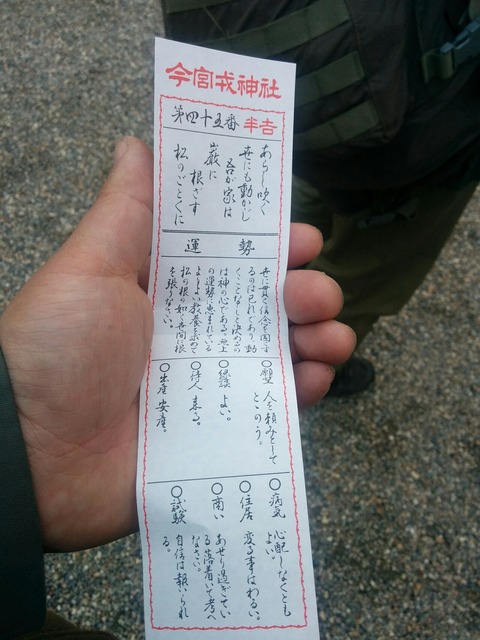 今宮戎神社
第四十五番 半吉
あらし吹く
世にも動かじ
吾が家は
巌に
根ざす
松のごとくに
運勢
くことなしと決めるの
は神の心である。
の運勢に恵まれている
松の根の如く世間に根
を張りなさい。
○願望 人を頼みとして
ととのう。
○縁談 よい。
○待人 来る。
○出産 安産。
○病気 心配しなくとも
よい。
○住居 変る事はわるい。
○商い あせり過ぎてい
る落着いて考へ
なさい。
○試験 自信は報いられ
る。